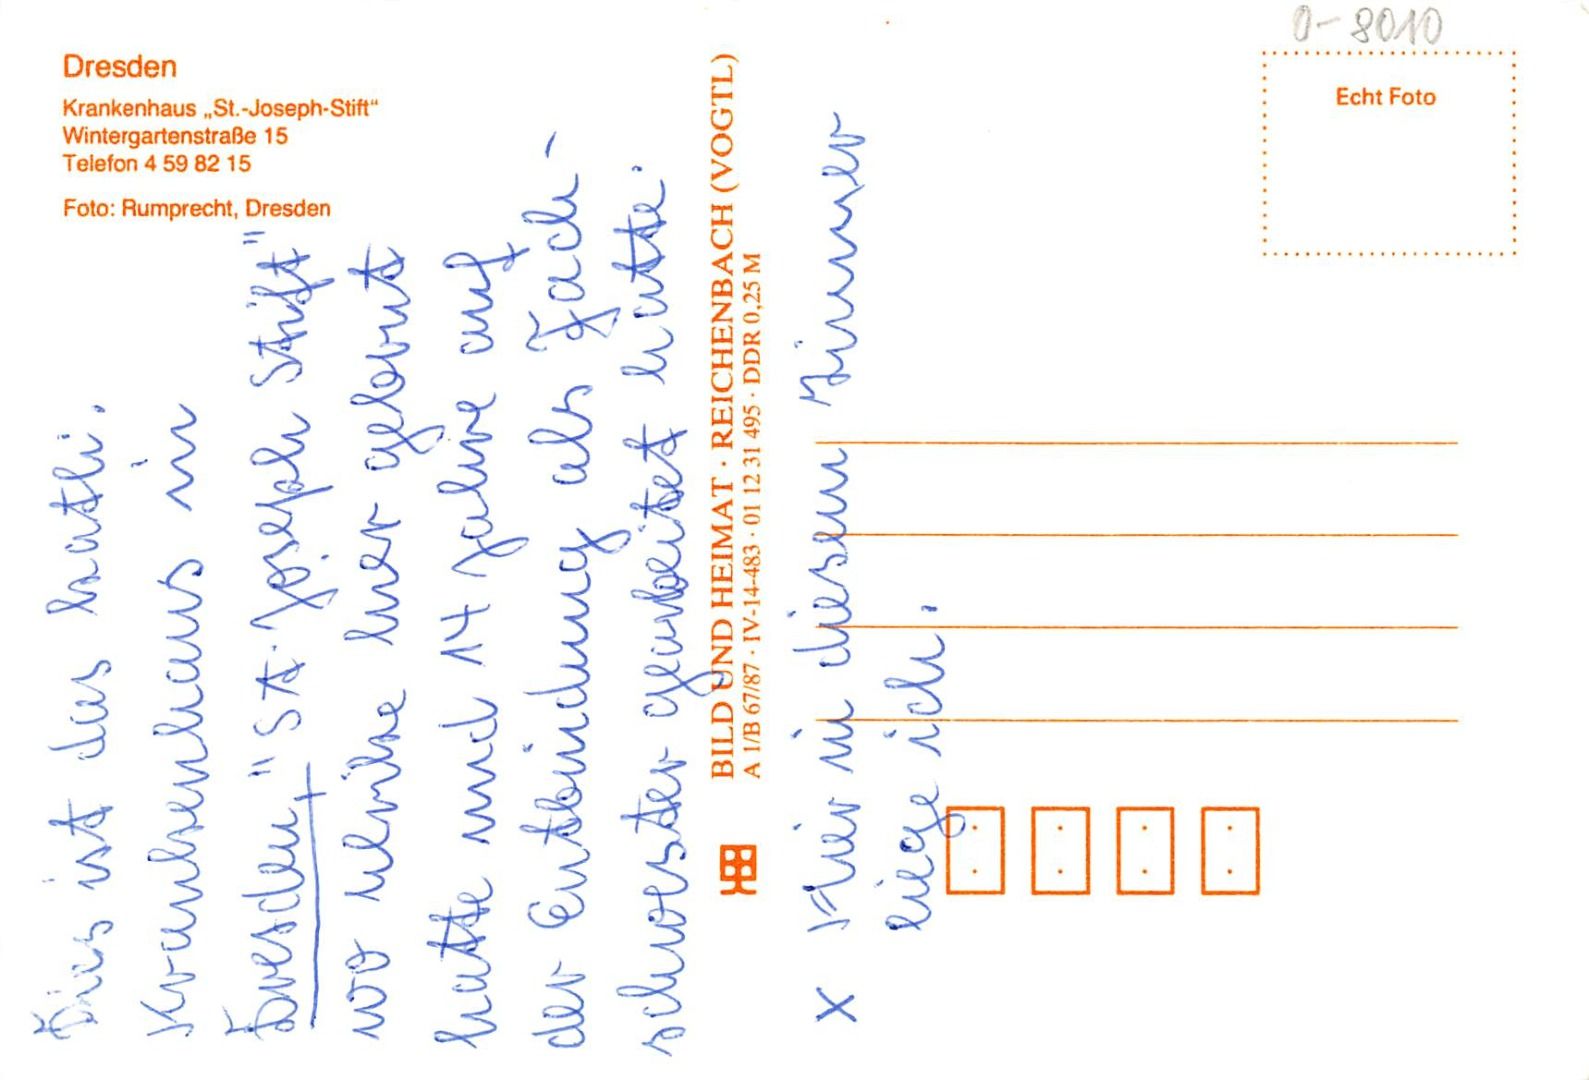 Dresden
Krankenhaus „St.-Joseph-Stift“
Wintergartenstraße 15
Telefon 4 59 82 15
Foto: Rumprecht, Dresden
0-8010
Echt Foto
Dies ist das kathl.
Krankenhaus in
Dresden "St. Joseph Stift"
wo hier gelernt
hatte und 14 Jahre auf
der Entbindung als Fach-
schwester gearbeitet hatte.
BILD UND HEIMAT · REICHENBACH (VOGTL)
A 1/B 67/87 · IV-14-483 · 01 12 31 495 · DDR 0,25 M
X Hier in diesem Zimmer
liege ich.